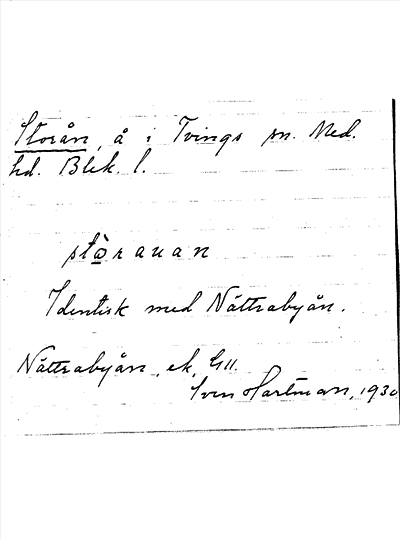 Storån, å i Tvings sn. Med.
hd. Blek. l.
stò̲rauan
Identisk med Nättrabyån.
Nättrabyån, ek.
Sven Hartman, 1930